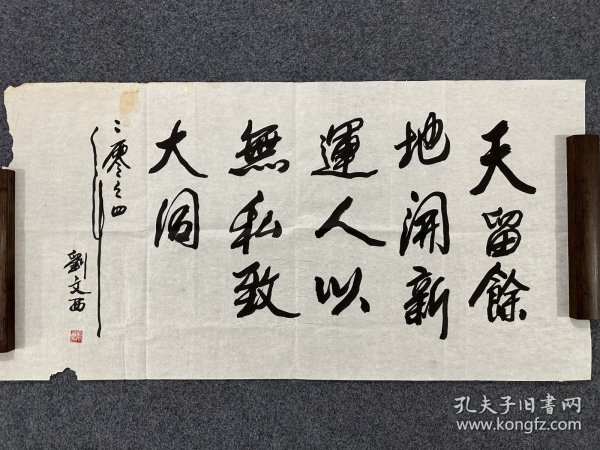 天留餘
地開新
運人以
無私致
大同
二零零四年
劉文西
孔夫子旧书网
www.kongfz.com